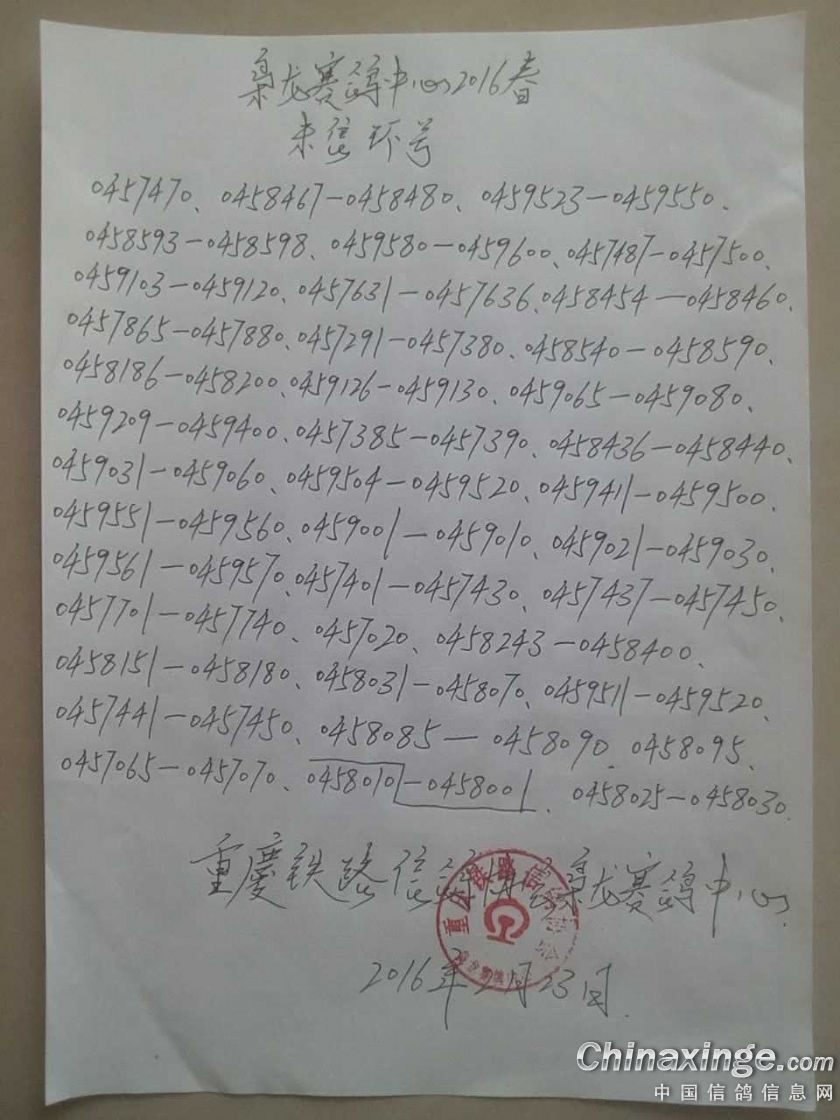 枭龙赛鸽中心2016春
未售环号
0457470、0458467—0458480、0459523—0459550.
0458593—0458598、0459580—0459600、0457487—0457500、
0459103—0459120、0457631—0457636、0458454—0458460、
0457865—0457880、0457291—0457380、0458540—0458590、
0458186—0458200、0459126—0459130、0459065—0459080、
0459209—0459400、0457385—0457390、0458436—0458440、
0459031—0459060、0459504—0459520、0459411—0459500、
0459551—0459560、0459001—0459010、0459021—0459030、
0459561—0459570、0457401—0457430、0457437—0457450、
0457701—0457740、0457020、0458243—0458400、
0458151—0458180、0458031—0458070、0459511—0459520、
0457441—0457450、0458085—0458090、0458095、
0457065—0457070、0458010—0458001、0458025—0458030.
重慶铁路信鸽协会枭龙赛鸽中心
2016年 月23日.
Chinaxinge.com
中国信鸽信息网